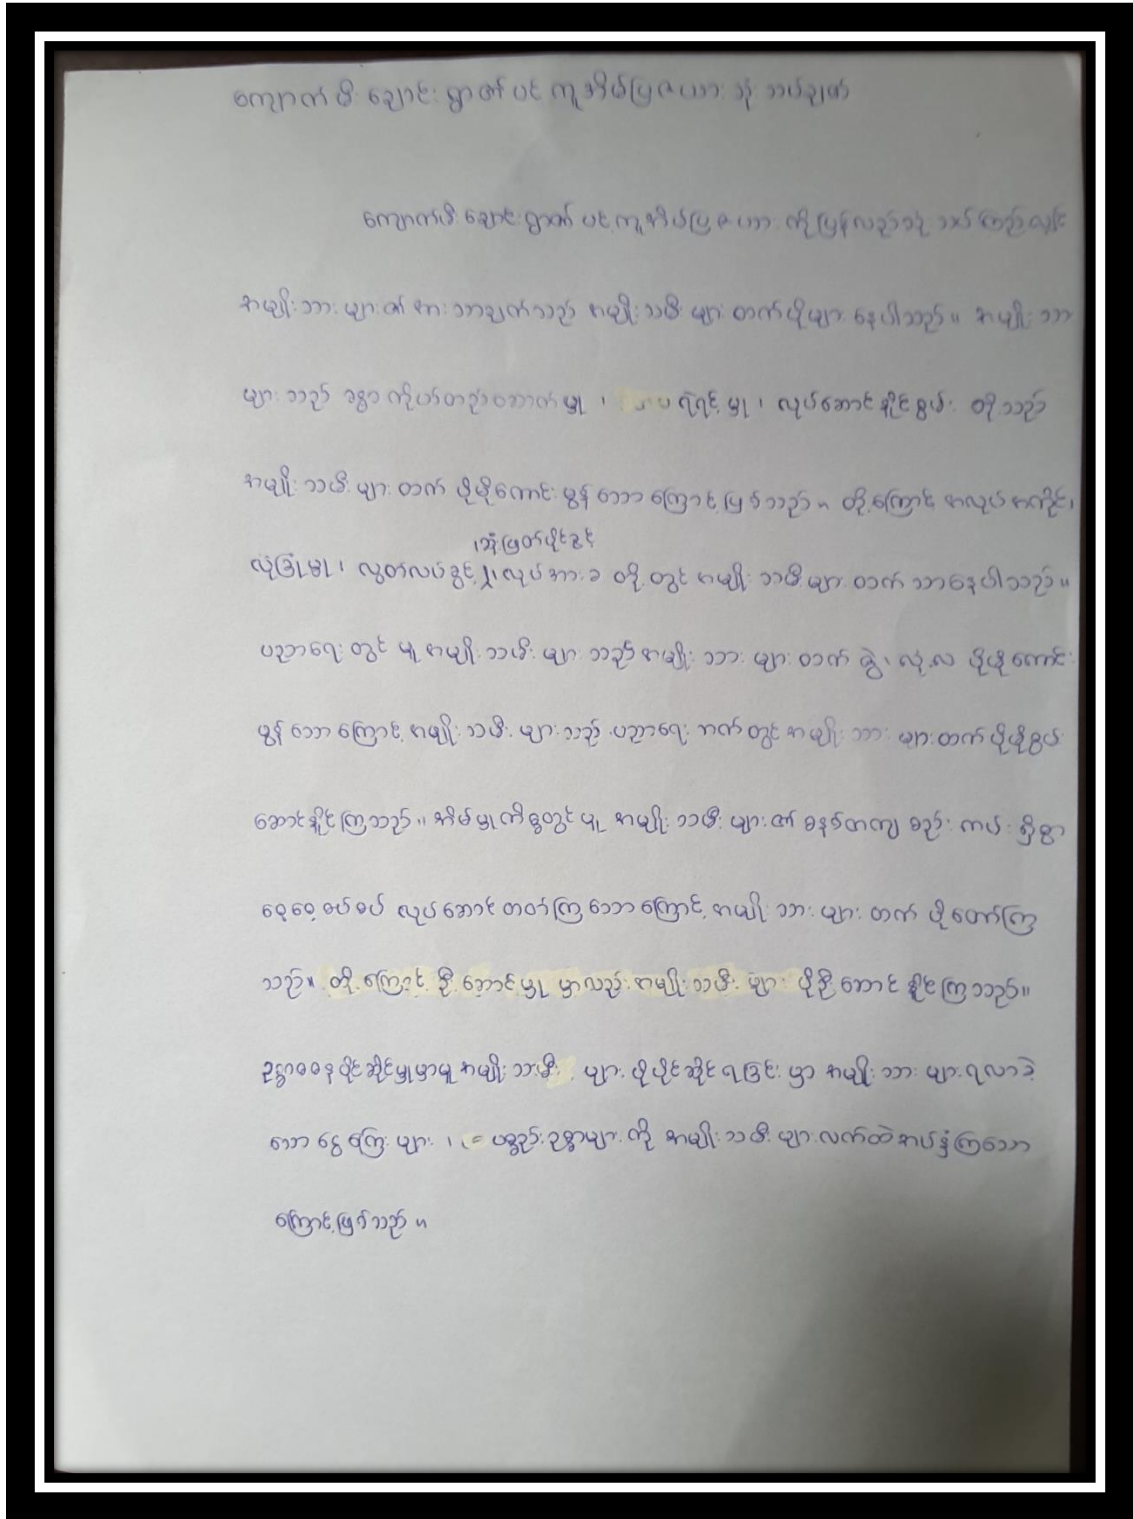 ကျောက်မီးချောင်းရွာ၏ ပင်ကူအိမ်ပြဇယား သုံးသပ်ချက်
ကျောက်မီးချောင်းရွာ၏ ပင်ကူအိမ်ပြဇယားကို ပြန်လည်သုံးသပ်ကြည့်လျှင်
အမျိုးသားများ၏ အားသာချက်သည် အမျိုးသမီးများထက်ပိုများနေပါသည်။ အမျိုးသား
များသည် ခန္ဓာကိုယ်တည်ဆောက်မှု ၊ ရဲရင့်မှု ၊ လုပ်ဆောင်နိုင်စွမ်း တို့သည်
အမျိုးသမီးများထက် ပိုမိုကောင်းမွန်သောကြောင့်ဖြစ်သည်။ ထို့ကြောင့် အလုပ်အကိုင်၊
၊ဆုံးဖြတ်ပိုင်ခွင့်
လုံခြုံမှု ၊ လွတ်လပ်ခွင့် ၊လုပ်အားခ တို့တွင် အမျိုးသမီးများထက် သာနေပါသည်။
ပညာရေးတွင်မူ အမျိုးသမီးများသည် အမျိုးသားများထက် ဇွဲ၊ လုံ့လ ပိုမိုကောင်း
မွန်သောကြောင့် အမျိုးသမီးများသည် ပညာရေးဘက်တွင် အမျိုးသားများထက်ပိုမိုစွမ်း
ဆောင်နိုင်ကြသည်။ အိမ်မှုကိစ္စတွင်မူ အမျိုးသမီးများ၏ စနစ်တကျ စည်းကမ်းရှိစွာ
စေ့စေ့စပ်စပ် လုပ်ဆောင်တတ်ကြသောကြောင့် အမျိုးသားများထက် ပိုတော်ကြ
သည်။ ထို့ကြောင့် ဦးဆောင်မှုမှာလည်း အမျိုးသမီးများ ပိုဦးဆောင်နိုင်ကြသည်။
ဥစ္စာဓနပိုင်ဆိုင်မှုမှာမူ အမျိုးသမီးများ ပိုပိုင်ဆိုင်ရခြင်းမှာ အမျိုးသားများရလာခဲ့
သော ငွေကြေးများ ၊ ပစ္စည်းဥစ္စာများကို အမျိုးသမီးများလက်ထဲအပ်နှံကြသော
ကြောင့်ဖြစ်သည်။